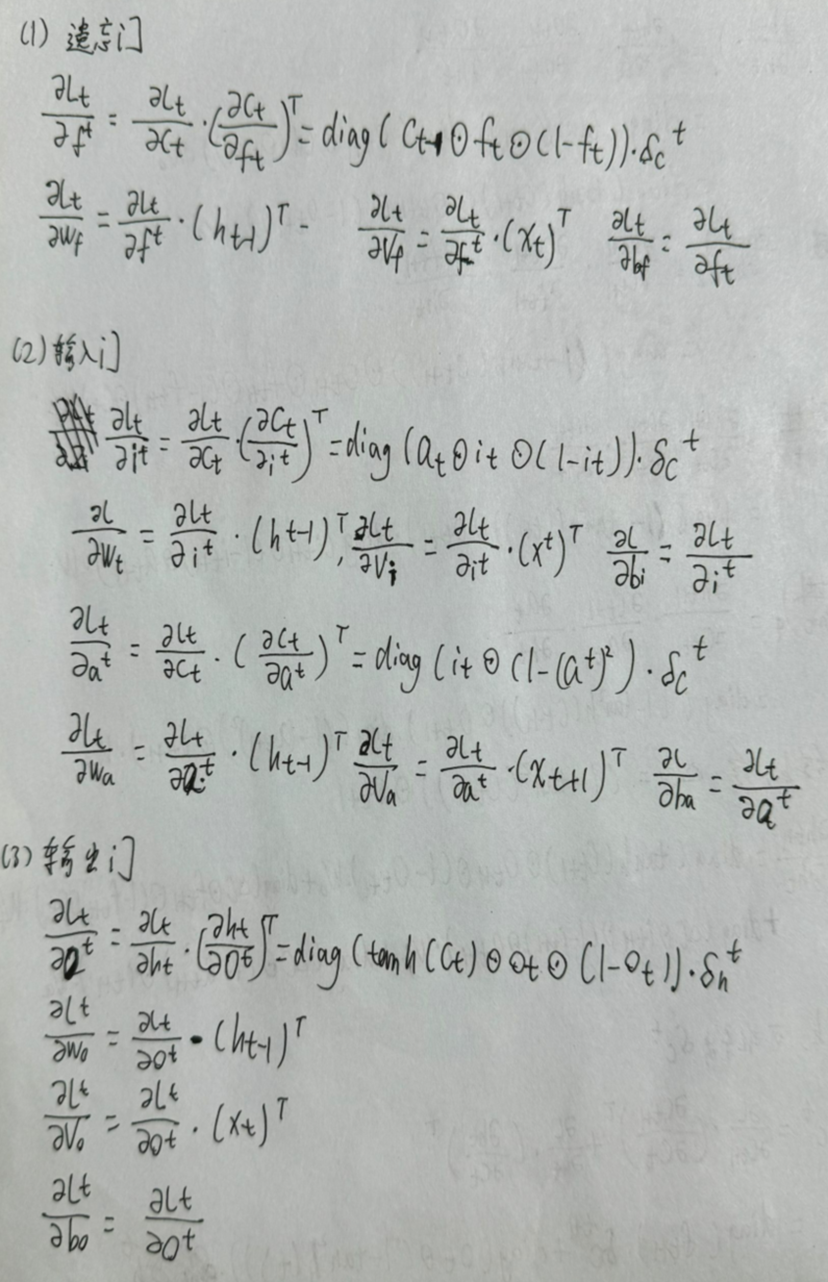 (1) 遗忘门
∂Lt/∂f^t = ∂Lt/∂Ct · (∂Ct/∂ft)^T = diag(Ct-1 ⊙ ft ⊙ (1-ft)) · δc^t
∂Lt/∂wf = ∂Lt/∂f^t · (ht-1)^T - ∂Lt/∂Vf = ∂Lt/∂f^t · (xt)^T ∂Lt/∂bf = ∂Lt/∂ft
(2) 输入门
∂Lt/∂it = ∂Lt/∂Ct · (∂Ct/∂i^t)^T = diag(at ⊙ it ⊙ (1-it)) · δc^t
∂L/∂wt = ∂Lt/∂i^t · (ht-1)^T, ∂Lt/∂Vi = ∂Lt/∂it · (x^t)^T ∂L/∂bi = ∂Lt/∂i^t
∂Lt/∂a^t = ∂Lt/∂Ct · (∂Ct/∂a^t)^T = diag(it ⊙ (1-(a^t)^2) · δc^t
∂Lt/∂wa = ∂Lt/∂a^t · (ht-1)^T ∂Lt/∂Va = ∂Lt/∂a^t · (xt+1)^T ∂L/∂ba = ∂Lt/∂a^t
(3) 输出门
∂Lt/∂o^t = ∂Lt/∂ht · (∂ht/∂o^t)^T = diag(tanh(Ct) ⊙ ot ⊙ (1-ot)) · δh^t
∂Lt/∂wo = ∂Lt/∂o^t · (ht-1)^T
∂Lt/∂Vo = ∂Lt/∂ot · (xt)^T
∂Lt/∂bo = ∂Lt/∂o^t